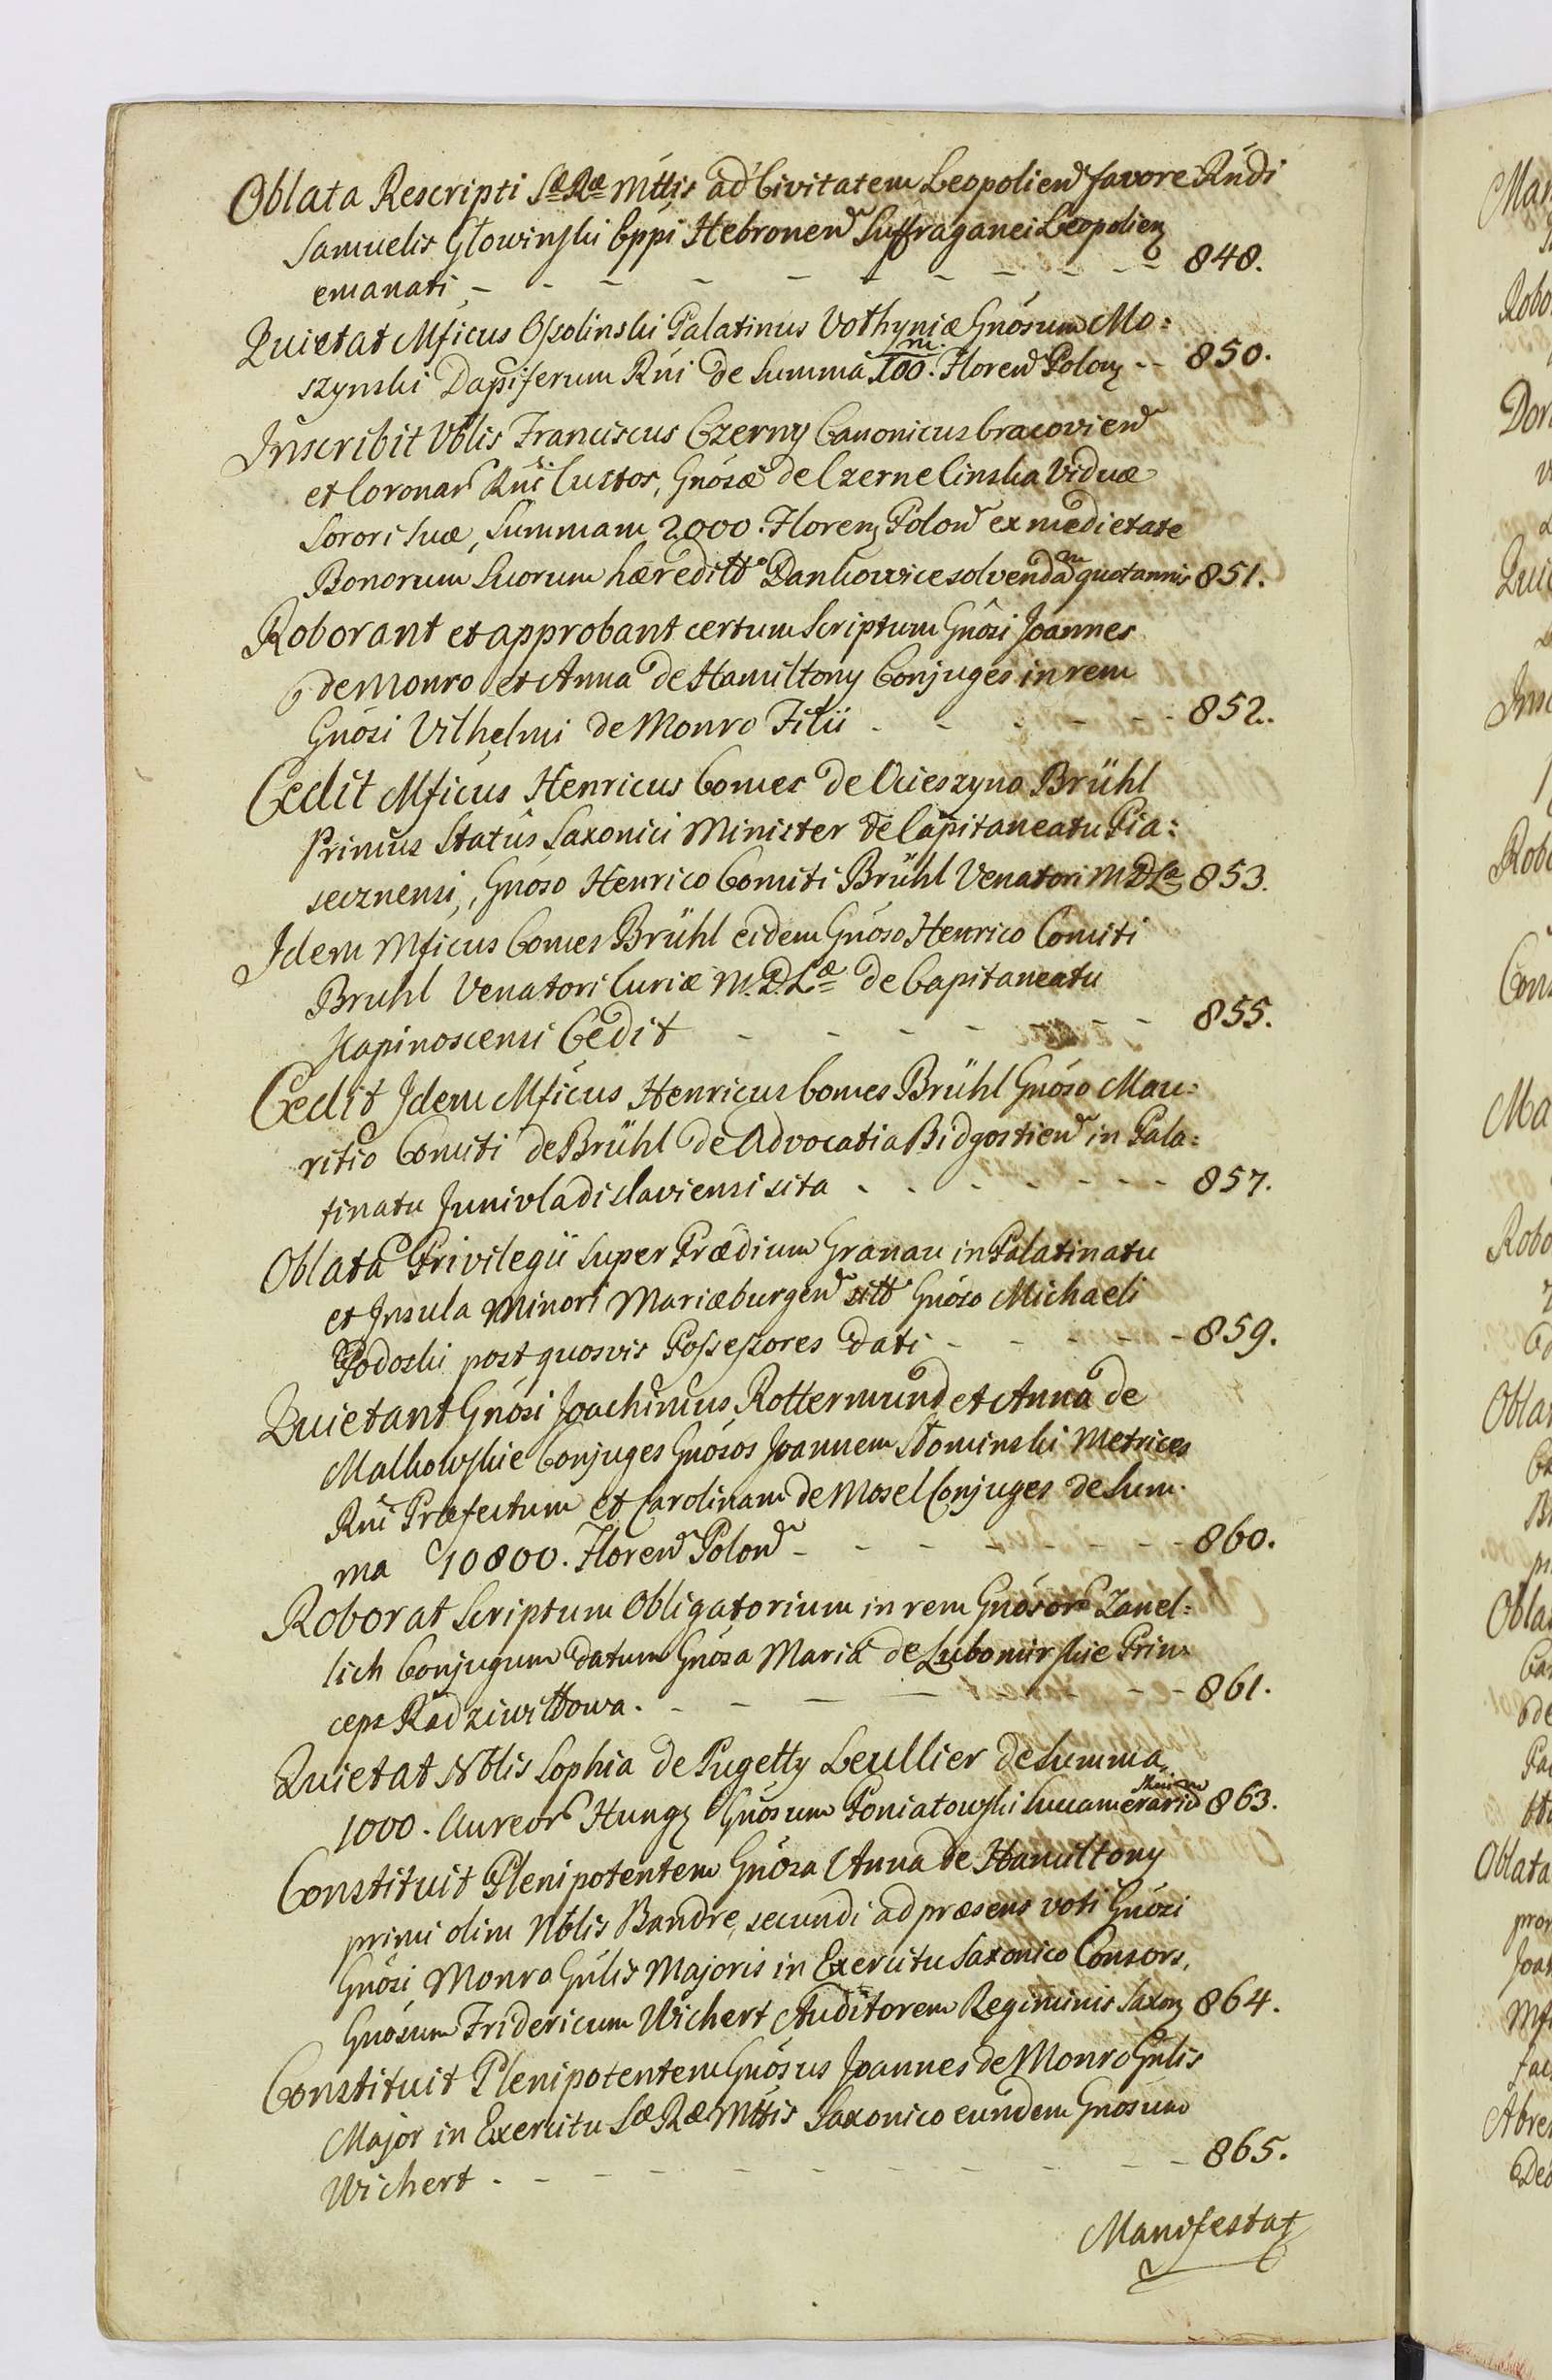 Oblata Rescripti Sæ Ræ Mttis ad Civitatem Leopolien favore Rndi
Samuelis Głowinski Eppi Hebronen Suffraganei Leopolien
emanati - - - - - - - - - 848.
Quietat Mficus Ossolinski Palatinus Vołhyniæ Gnosum Mo:
szynski Dapiferum Rni de Summa 100.m Floren Polon - - 850.
Inscribit Vblis Franciscus Czerny Canonicus Cracovien
et Coronar Rni Custos, Gnosæ de Czerne Cinska Viduæ
Sorori suæ, Summam 2000. Floren Polon ex medietate
Bonorum suorum hæreditt Dankowice solvendam quotannis 851.
Roborant et approbant certum Scriptum Gnosi Joannes
de Monro et Anna de Hamiltony Conjuges in rem
Gnosi Vilhelmi de Monro Filii - - - - - 852.
Cedit Mficus Henricus Comes de Ocieszyno Brühl
Primus Status Saxonici Minister de Capitaneatu Pia:
secznensi, Gnoso Henrico Comiti Brühl Venatori M D Læ 853.
Idem Mficus Comes Brühl eidem Gnoso Henrico Comiti
Bruhl Venatori Curiæ M. D. Læ de Capitaneatu
Kapinoscensi Cedit - - - - - - - 855.
Cedit Idem Mficus Henricus Comes Brühl Gnoso Mau:
ritio Comiti de Brühl de Advocatia Bidgostien in Pala:
tinatu Junivladislaviensi sita - - - - - - - 857.
Oblata Privilegii super Prædium Granau in Palatinatu
et Insula Minori Mariæburgen sitt Gnoso Michaeli
Podoski post quosvis Possessores dati - - - - - 859.
Quietant Gnosi Joachimus Rottermund et Anna de
Malhowskie Conjuges Gnosos Joannem Słominski Metrices
Rni Præfectum et Carolinam de Mosel Conjuges de Sum:
ma 10800. Floren Polon - - - - - - 860.
Roborat Scriptum Obligatorium in rem Gnosor Zanel:
lich Conjugum datum Gnosa Maria de Lubomirskie Prin:
ceps Radziwiłłowa. - - - - - - - 861.
Quietat Nblis Sophia de Pugetty Leullier de Summa
1000. Aureor Hung Gnosum Poniatowski Succamerarium 863.
Constituit Plenipotentem Gnosa Anna de Hamiltony
primi olim Nblis Bandre, secundi ad præsens voti Gnosi
Gnosi Monro Gnlis Majoris in Exercitu Saxonico Consors,
Gnosum Fridericum Wichert Auditorem Regiminis Saxon 864.
Constituit Plenipotentem Gnosus Joannes de Monro Gnlis
Major in Exercitu Sæ Ræ Mttis Saxonico eundem Gnosum
Wichert - - - - - - - - - - 865.
Manifestat